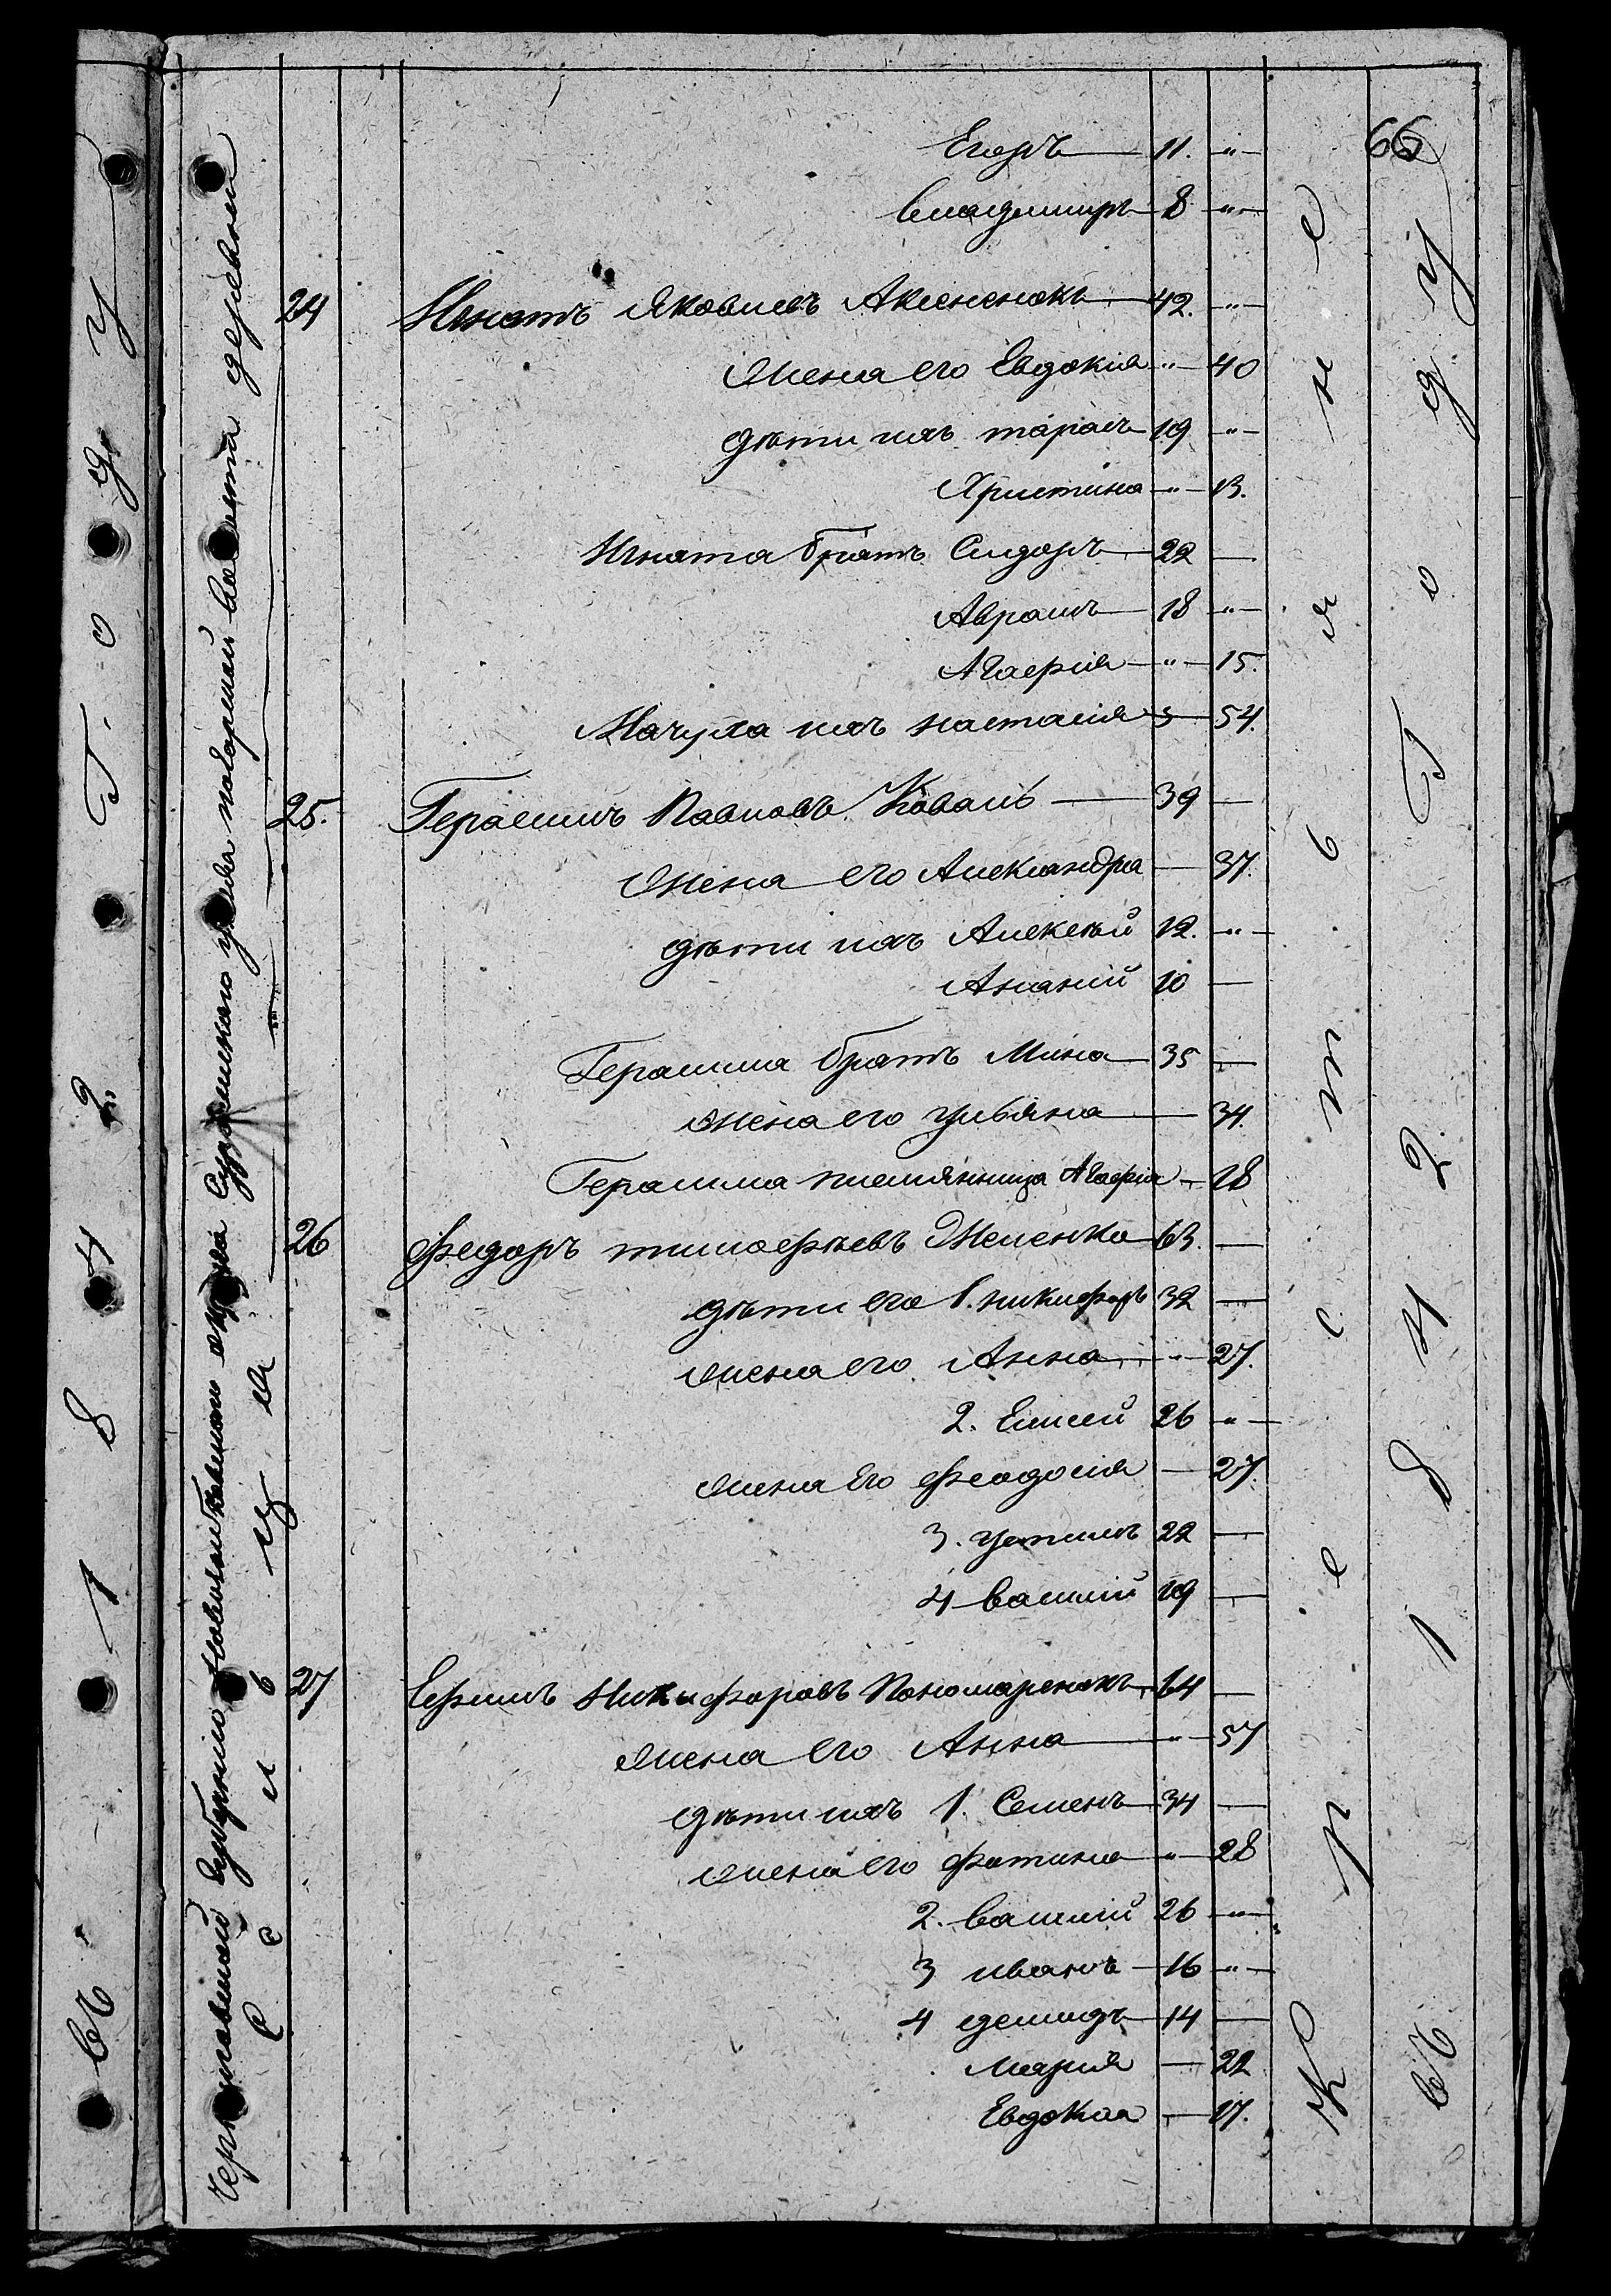 66
Егоръ 11. "
Владимиръ 8 "
24 Игнатъ Яковлевъ Аксененокъ 42. "
жена его Евдокия " 40
дѣти ихъ тарасъ 19 "
Христина " 13.
Игната братъ Сидоръ 22 —
Авраамъ 18 "
Агафия " 15.
Мачуха ихъ настасия 54.
25. Герасимъ Павловъ Коваль 39 —
жена его Александра — 37.
дѣти ихъ Алексѣй 12. "
Ананий 10 —
Герасима братъ Мина 35 —
жена его ульяна — 34.
Герасима племянница Агафия — 18
26 федоръ тимофѣевъ Жменько 63. —
дѣти его 1. никифоръ 32 —
жена его Анна " 27.
2. Елисей 26 "
жена его феодосия — 27.
3. устимъ 22 —
4 василий 19 —
27 Ефимъ Никифоровъ Пономаренокъ 64 —
жена его Анна " 57
дѣти ихъ 1. Семенъ 34 —
жена его фотина " 28
2. василий 26 "
3 иванъ 16 "
4 демидъ 14 —
мария — 22
Евдокия — 17.
Черниговской Губернии Новозыбковскаго округа Суражскаго уезда поворской волости деревни
Крестьяне
Въ 1842 Году
Въ 1842 Году